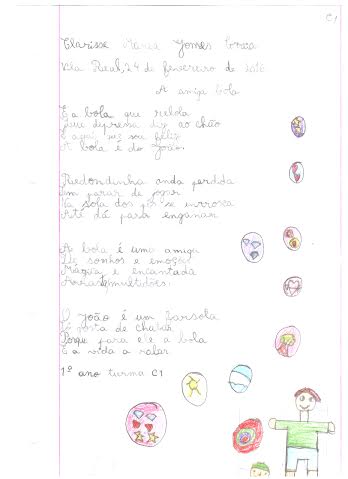 C1
Clarisse Maria Gomes
Vila Real, 24 de fevereiro de
A amiga bola
É a bola que rebola
Que depressa diz ao chão
E aqui vez sou feliz
A bola é do João.
Redondinha anda perdida
sem parar de jogar
Na sola dos pés se enrosca
Até dá para enganar
A bola é uma amiga
De sonhos e emoções
Mágica e encantada
Arrasta multidões.
O João é um farsola
Já gosta de
Porque para ele a bola
É a vida a rolar.
1º ano turma C1